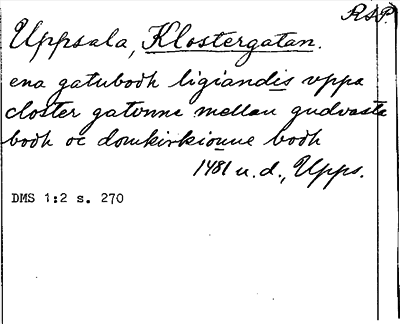 RSP.
Uppsala, Klostergatan.
ena gatubodh ligiandis vppa
closter gatonne mellan gudvasta
bodh oc domkirkionne bodh
1481 u.d., Upps.
DMS 1:2 s. 270